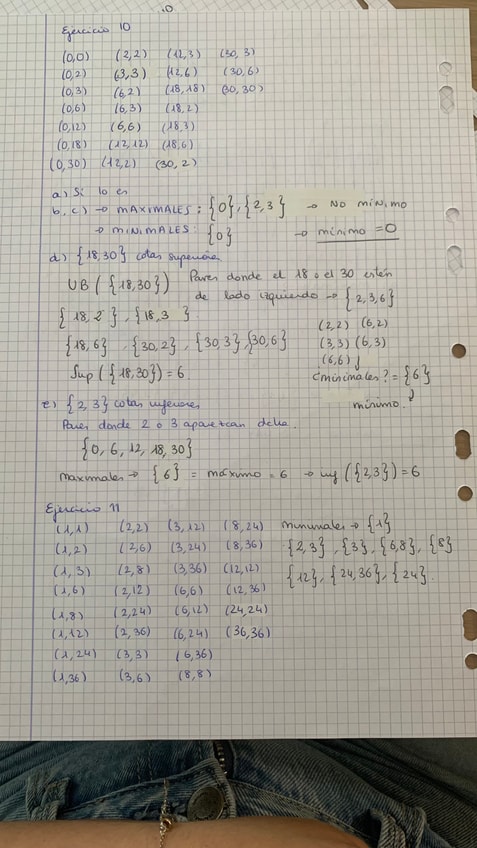 Ejercicio 10
(0,0) (2,2) (12,3) (30,3)
(0,2) (3,3) (12,6) (30,6)
(0,3) (6,2) (18,18) (30,30)
(0,6) (6,3) (18,2)
(0,12) (6,6) (18,3)
(0,18) (12,12) (18,6)
(0,30) (12,2) (30,2)
a) Sí lo es
b, c) → MAXIMALES: {0}, {2,3} → NO MÍNIMO
→ MINIMALES: {0} → mínimo = 0
d) {18,30} cotas superiores
UB ({18,30}) Pares donde el 18 o el 30 estén
de lado izquierdo → {2,3,6}
{18,2}, {18,3}
(2,2) (6,2)
{18,6}, {30,2}, {30,3}, {30,6}
(3,3) (6,3)
(6,6)
Sup ({18,30}) = 6
¿minimales? = {6}
mínimo.
e) {2,3} cotas inferiores
Pares donde 2 o 3 aparezcan dcha.
{0, 6, 12, 18, 30}
maximales → {6} = máximo = 6 → inf ({2,3}) = 6
Ejercicio 11
(1,1) (2,2) (3,12) (8,24) minimales → {1}
(1,2) (2,6) (3,24) (8,36) {2,3}, {3}, {6,8}, {8}
(1,3) (2,8) (3,36) (12,12) {12}, {24,36}, {24}.
(1,6) (2,12) (6,6) (12,36)
(1,8) (2,24) (6,12) (24,24)
(1,12) (2,36) (6,24) (36,36)
(1,24) (3,3) (6,36)
(1,36) (3,6) (8,8)